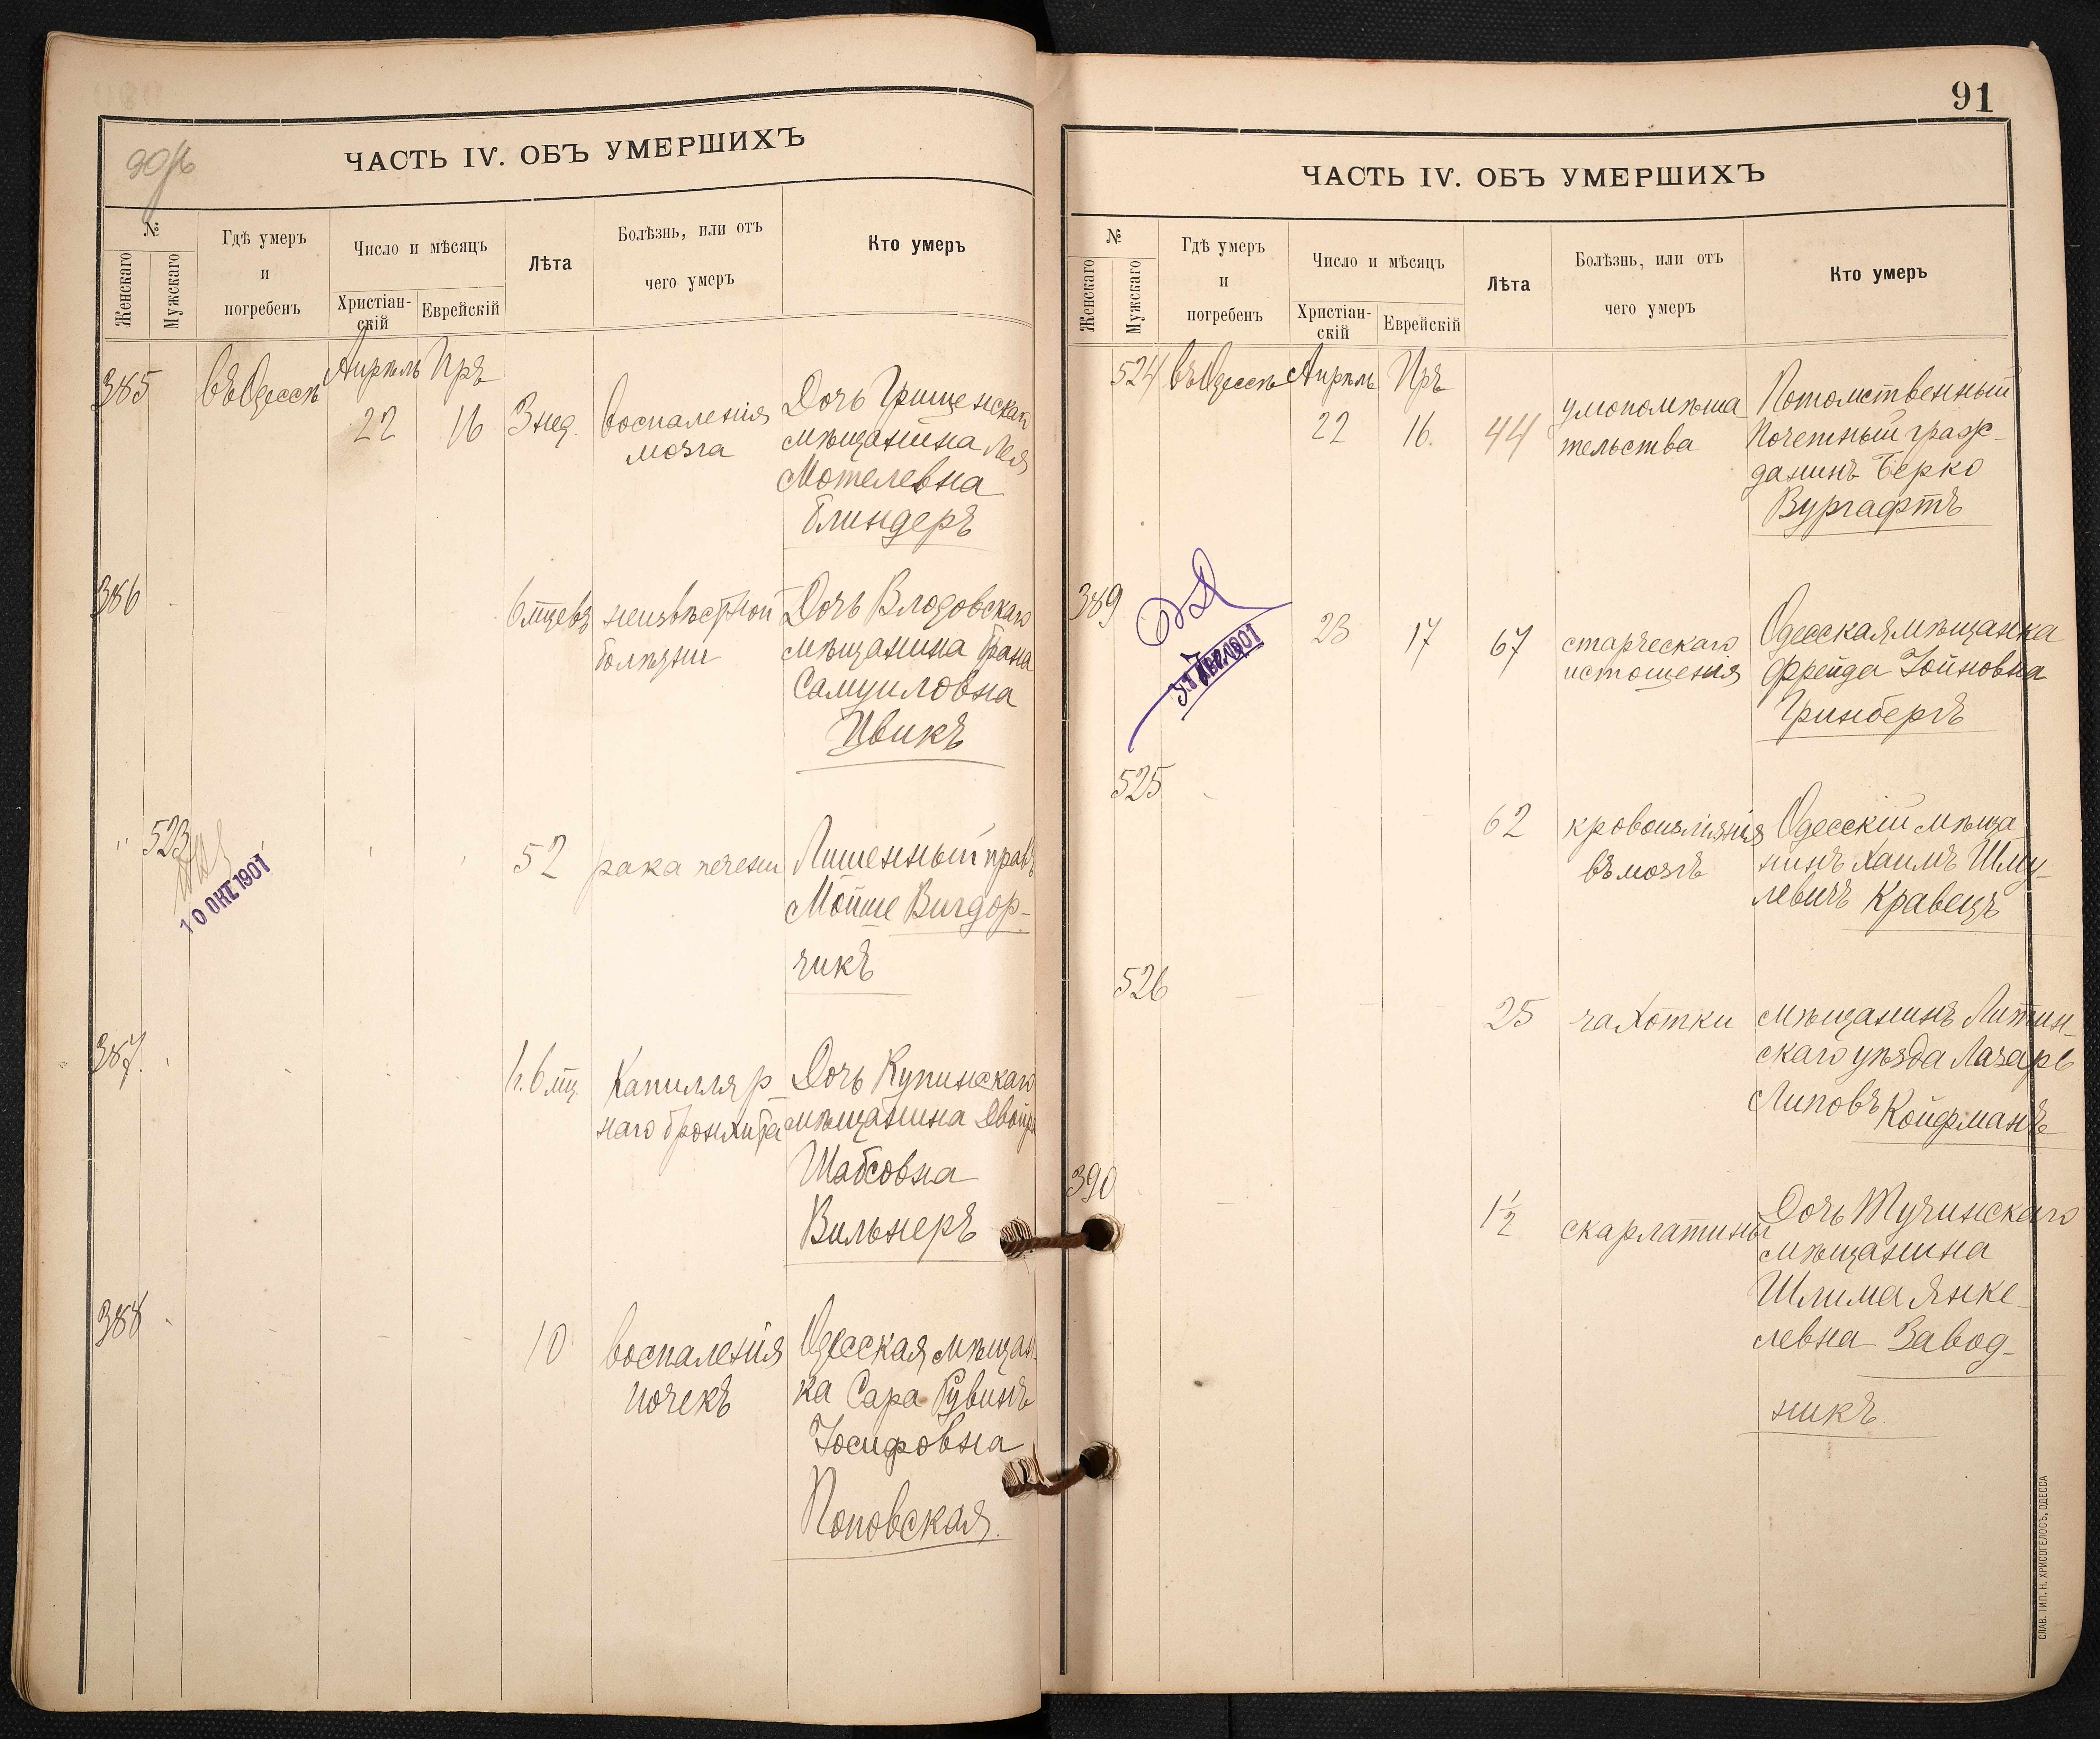 90об
ЧАСТЬ IV. ОБЪ УМЕРШИХЪ
№
Женскаго
Мужскаго
Гдѣ умеръ
и
погребенъ
Число и мѣсяцъ
Христіан-
скій
Еврейскій
Лѣта
Болѣзнь, или отъ
чего умеръ
Кто умеръ
385 въ Одессѣ Апрѣль Ияръ
22 16 3 нед. воспаленія Дочь Грищенскаго
мозга мѣщанина Лея
Мотелевна
Блиндеръ
386 6 мцевъ неизвѣстной Дочь Влодовскаго
болѣзни мѣщанина Грана
Самуиловна
Цвикъ
523 52 рака печени Лишенный правъ
Мойше Вигдор-
чикъ
10 ОКТ 1901
387. 1 г. 6 мц. Капилляр Дочь Купинскаго
наго бронхита мѣщанина Двойра
Шабсовна
Вильнеръ
388 10 воспаленія Одесская мѣщан
почекъ ка Сара Рувинъ
Іосифовна
Поповская.
91
ЧАСТЬ IV. ОБЪ УМЕРШИХЪ
№
Женскаго
Мужскаго
Гдѣ умеръ
и
погребенъ
Число и мѣсяцъ
Христіан-
скій
Еврейскій
Лѣта
Болѣзнь, или отъ
чего умеръ
Кто умеръ
524 въ Одессѣ Апрѣль Ияръ
22 16. 44 умопомѣша Потомственный
тельства Почетный граж-
данинъ Берко
Вургафтъ
389 23 17 67 старческаго Одесская мѣщанка
истощенія Фрейда Іойновна
Гринбергъ
525 62 кровоизліянія Одесскій мѣща
въ мозгъ нинъ Хаимъ Шму-
левичъ Кравецъ
526 25 чахотки мѣщанинъ Литин-
скаго уѣзда Лазарь
Липовъ Койфманъ
390 1 1/2 скарлатины Дочь Тучинскаго
мѣщанина
Шлима Янке-
левна Завод-
никъ.
СЛАВ. ТИП. Н. ХРИСОГЕЛОСЪ, ОДЕССА